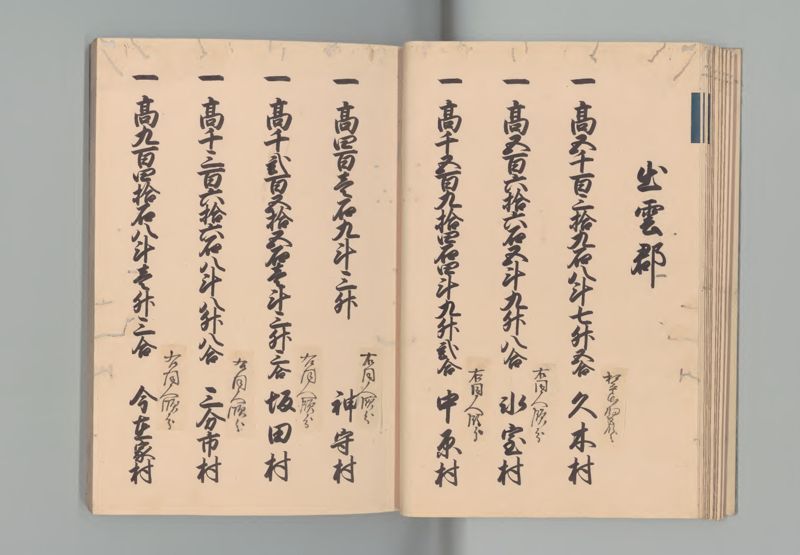 出雲郡
一 高五千百三拾九石八斗七升五合 久木村
一 高五百六拾六石五斗九升八合 右同人領分 氷室村
一 高千五百九拾四石四斗九升弐合 右同人領分 中原村
一 高四百壱石九斗三升 右同人領分 神守村
一 高千弐百五拾五石壱斗三升三合 右同人領分 坂田村
一 高千三百六拾六石八斗八升八合 右同人領分 三分市村
一 高九百四拾石八斗壱升三合 右同人領分 今在家村